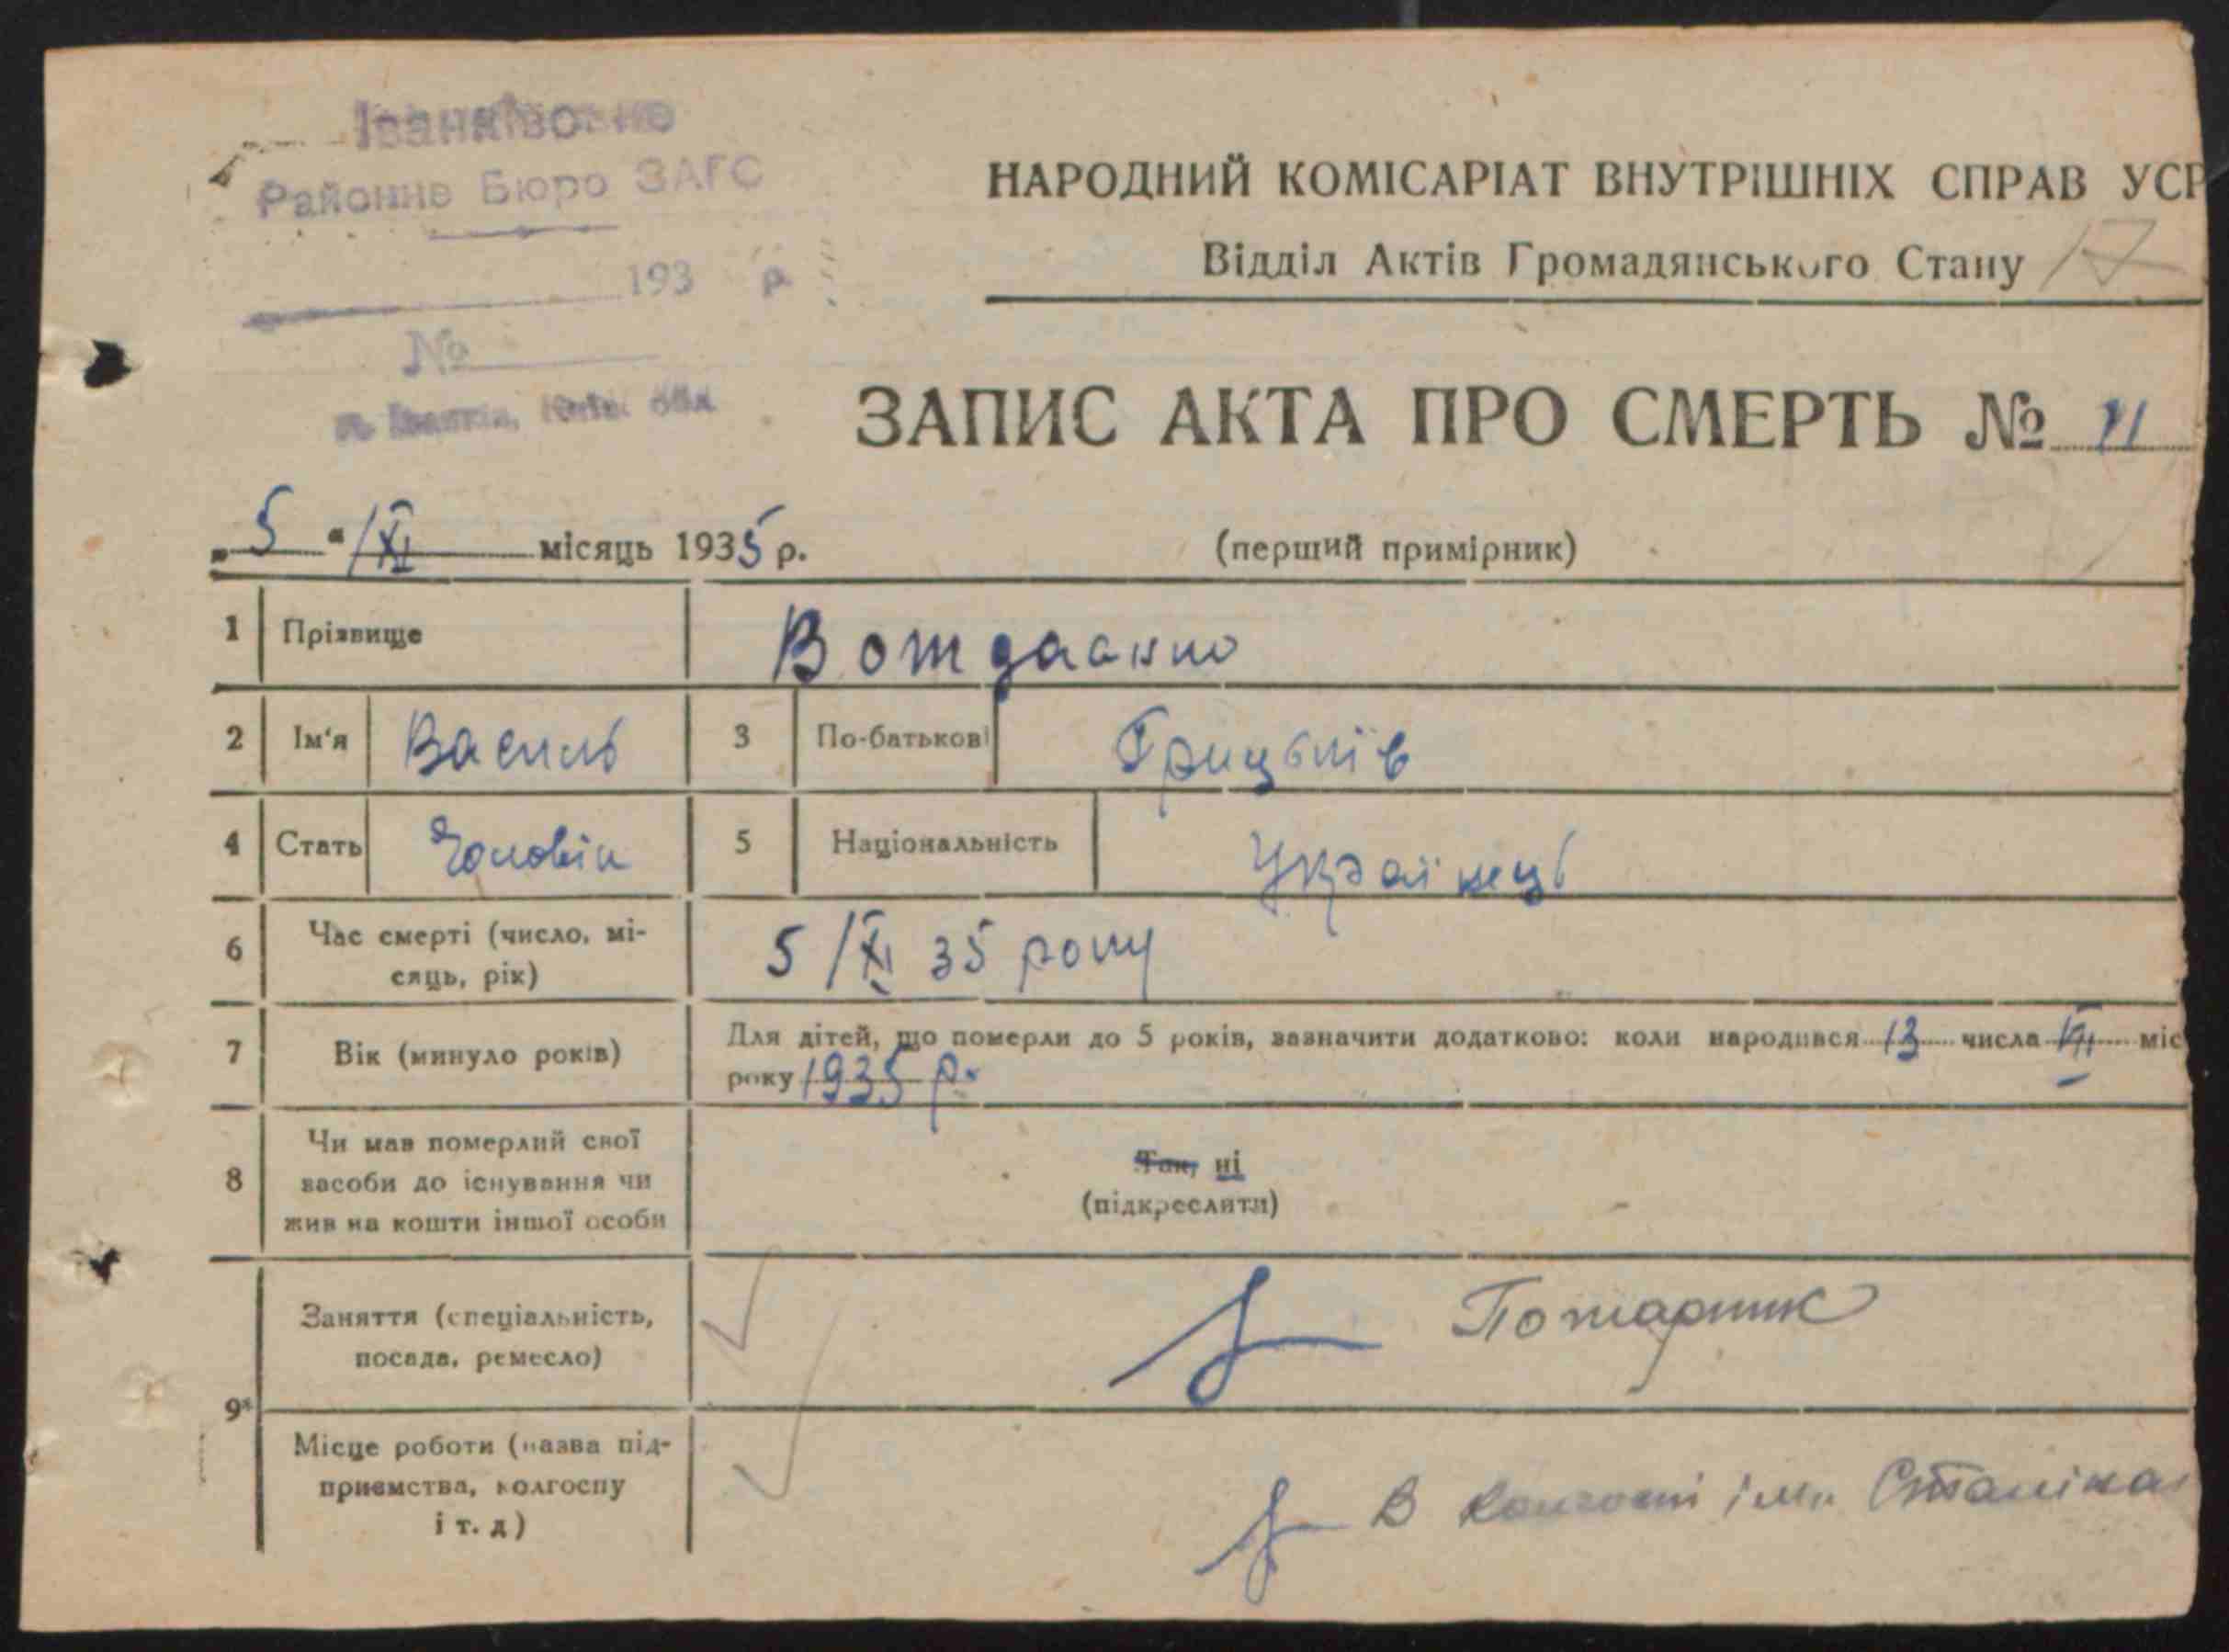 Іванківське
Районне Бюро ЗАГС
193 р.
№
м. Іванків, Київ. обл.
НАРОДНИЙ КОМІСАРІАТ ВНУТРІШНІХ СПРАВ УСР
Відділ Актів Громадянського Стану 17
ЗАПИС АКТА ПРО СМЕРТЬ № 11
„5“ /XI місяць 1935 р.
(перший примірник)
1 Прізвище
2 Ім'я Василь 3 По-батькові Грицьків
4 Стать Чоловік 5 Національність Українець
6 Час смерті (число, мі-
сяць, рік) 5/XI 35 року
7 Вік (минуло років) Для дітей, що померли до 5 років, зазначити додатково: коли народився 13 числа VII міс
року 1935 р.
8 Чи мав померлий свої
засоби до існування чи
жив на кошти іншої особи
Так, ні
(підкреслити)
9* Заняття (спеціальність,
посада, ремесло) Пожарник
Місце роботи (назва під-
приємства, колгоспу
і т. д) В колгоспі ім. Сталіна